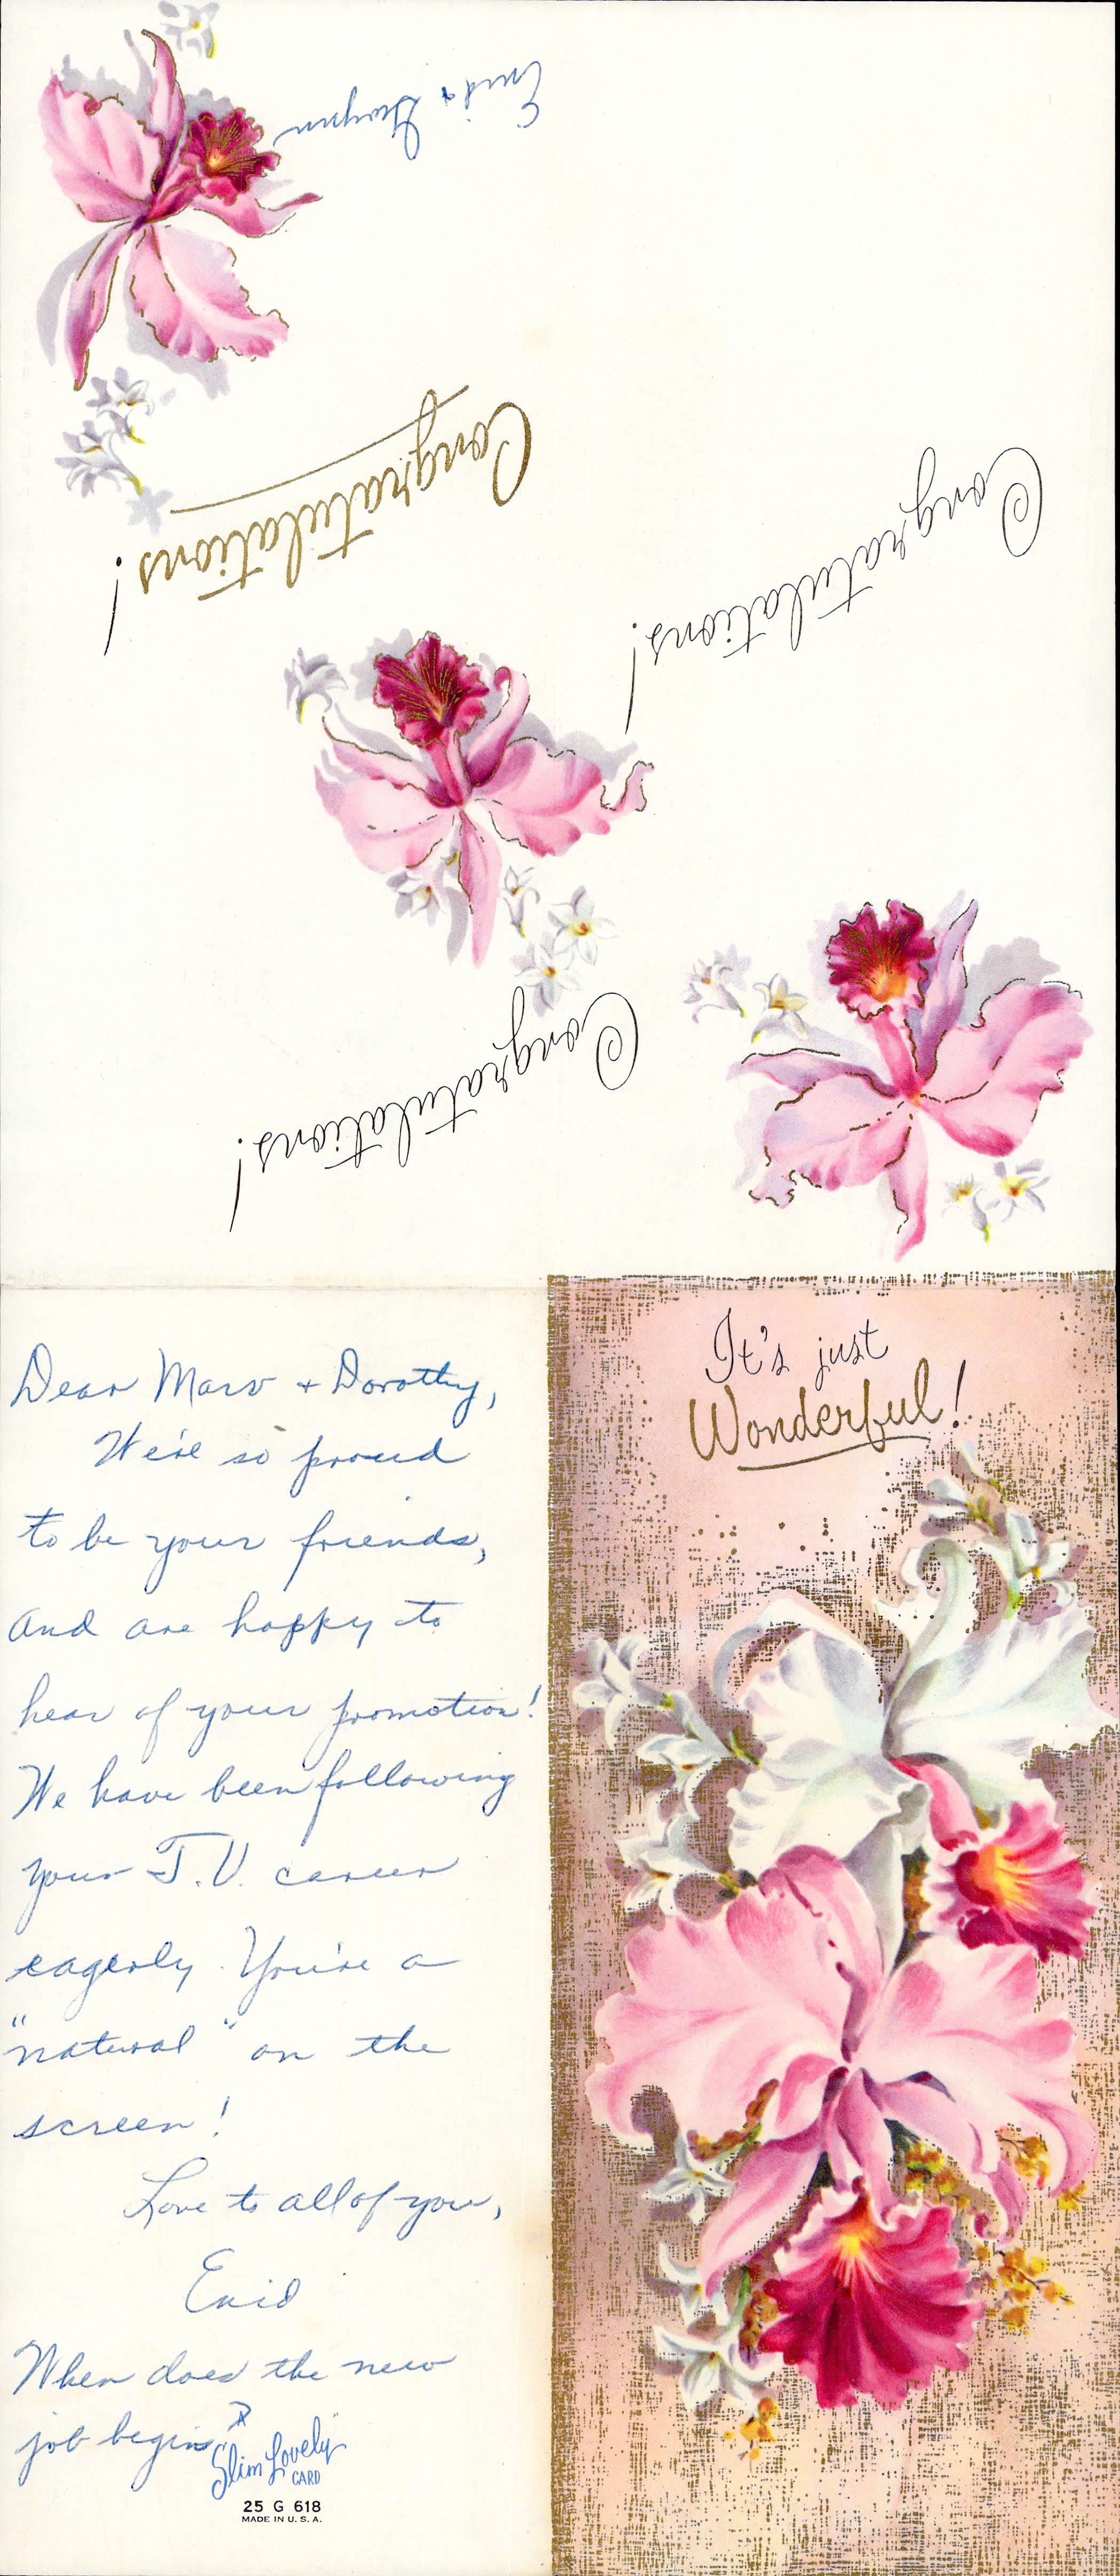 Enid & Gwynn
Congratulations!
Congratulations!
Congratulations!
It's just
Wonderful!
Dear Marv + Dorothy,
We're so proud
to be your friends,
and are happy to
hear of your promotion!
We have been following
your T.V. career
eagerly. You're a
"natural" on the
screen!
Love to all of you,
Enid
When does the new
job begin?
Slim Lovely
CARD
25 G 618
MADE IN U.S.A.